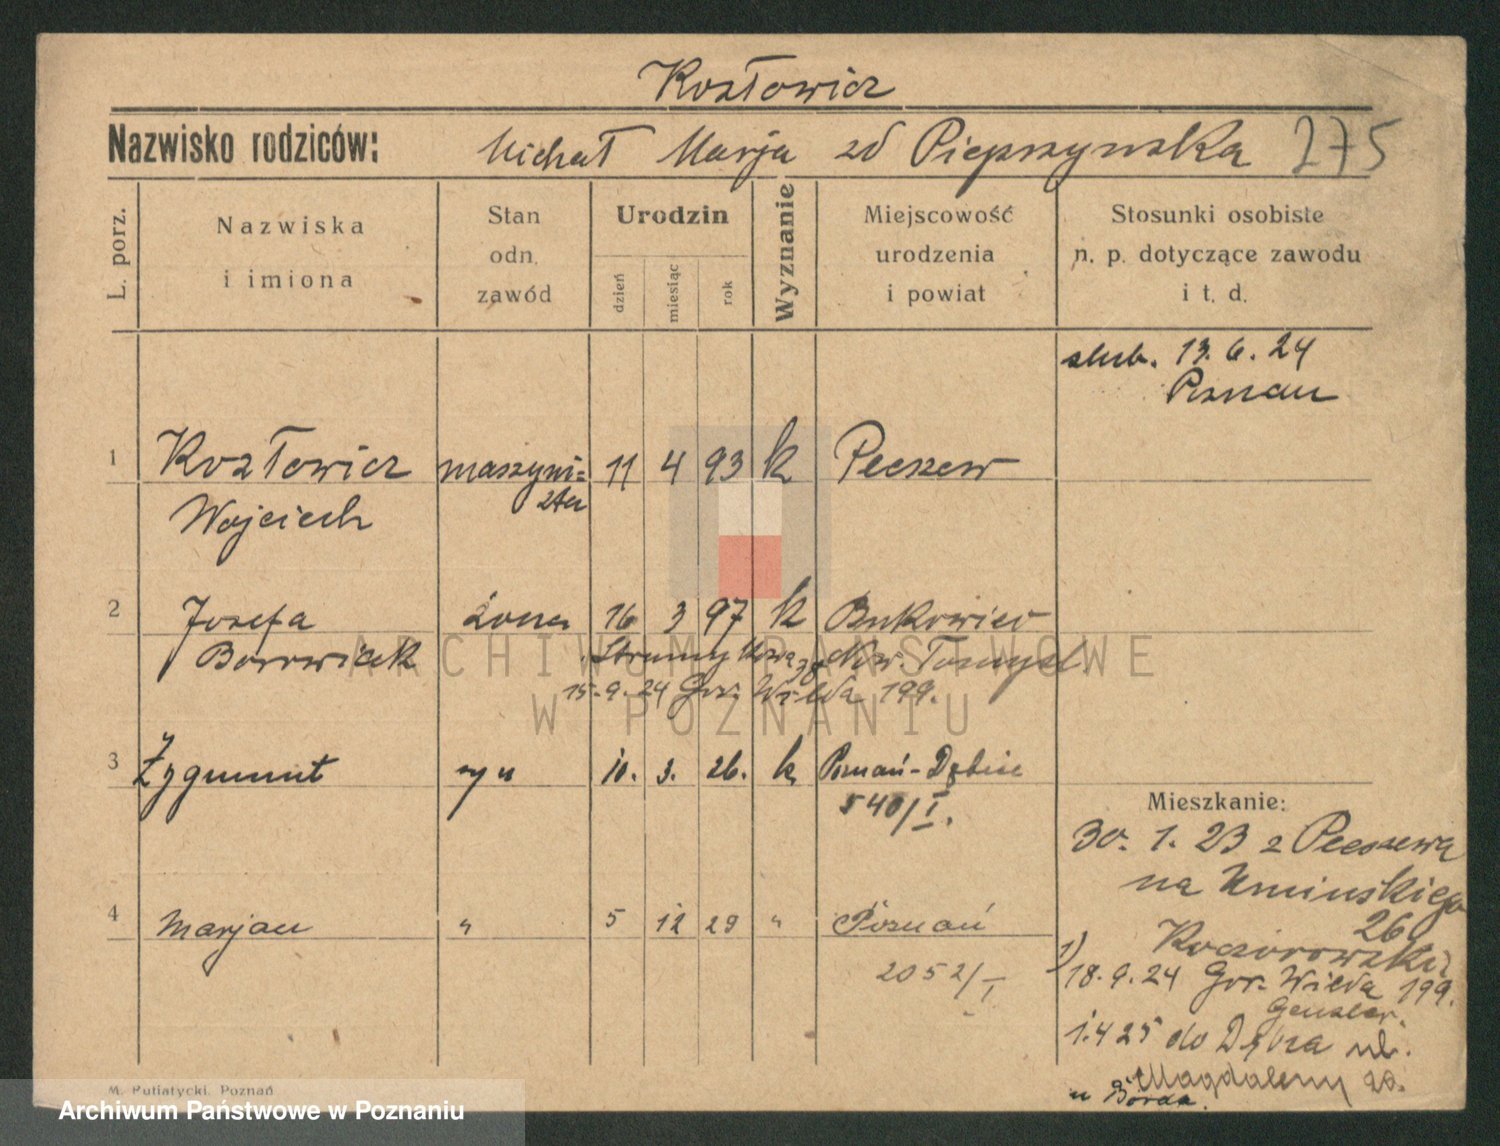 Kozłowicz
Nazwisko rodziców: Michał Marja zd Pieprzyńska 275
L. porz.
Nazwiska
i imiona
Stan
odn.
zawód
Urodzin
dzień
miesiąc
rok
Wyznanie
Miejscowość
urodzenia
i powiat
Stosunki osobiste
n. p. dotyczące zawodu
i t. d.
ślub. 13. 6. 24
Poznań
1 Kozłowicz maszyni= 11 4 93 k Peeszew
Wojciech sta
2 Józefa żona 16 3 97 k Bukowiec
Borowicek Now. Tomyśl
15.9.24 Gór. Wilda 199.
3 Zygmunt syn 10. 3. 26. k Poznań-Dębiec
540/I.
Mieszkanie:
30. 1. 23 z Peeszewa
na Umińskiego
26
4 Marjan " 5 12 29 " Poznań
2052/I
1)
18.9.24 Gór. Wilda 199.
1.4 25 do ul.
Magdaleny 20.
u
M. Putiatycki, Poznań
ARCHIWUM PAŃSTWOWE
W POZNANIU
Archiwum Państwowe w Poznaniu